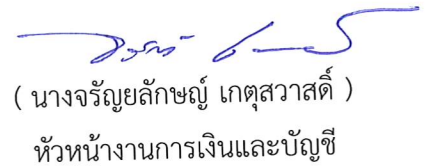 ( นางจรัญยลักษญ์ เกตุสวาสดิ์ )
หัวหน้างานการเงินและบัญชี